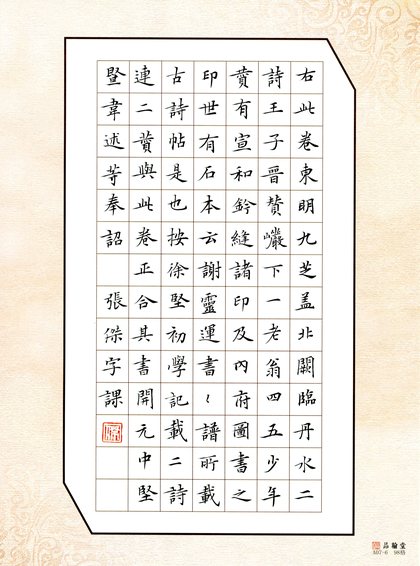 右此卷東明九芝盖北闕臨丹水二
詩王子晉賛巖下一老翁四五少年
賛有宣和鈐縫諸印及内府圖書之
印世有石本云謝靈運書〻譜所載
古詩帖是也按徐堅初學記載二詩
連二賛與此卷正合其書開元中堅
暨韋述等奉詔 張傑字課
品翰堂
A07-6 98格